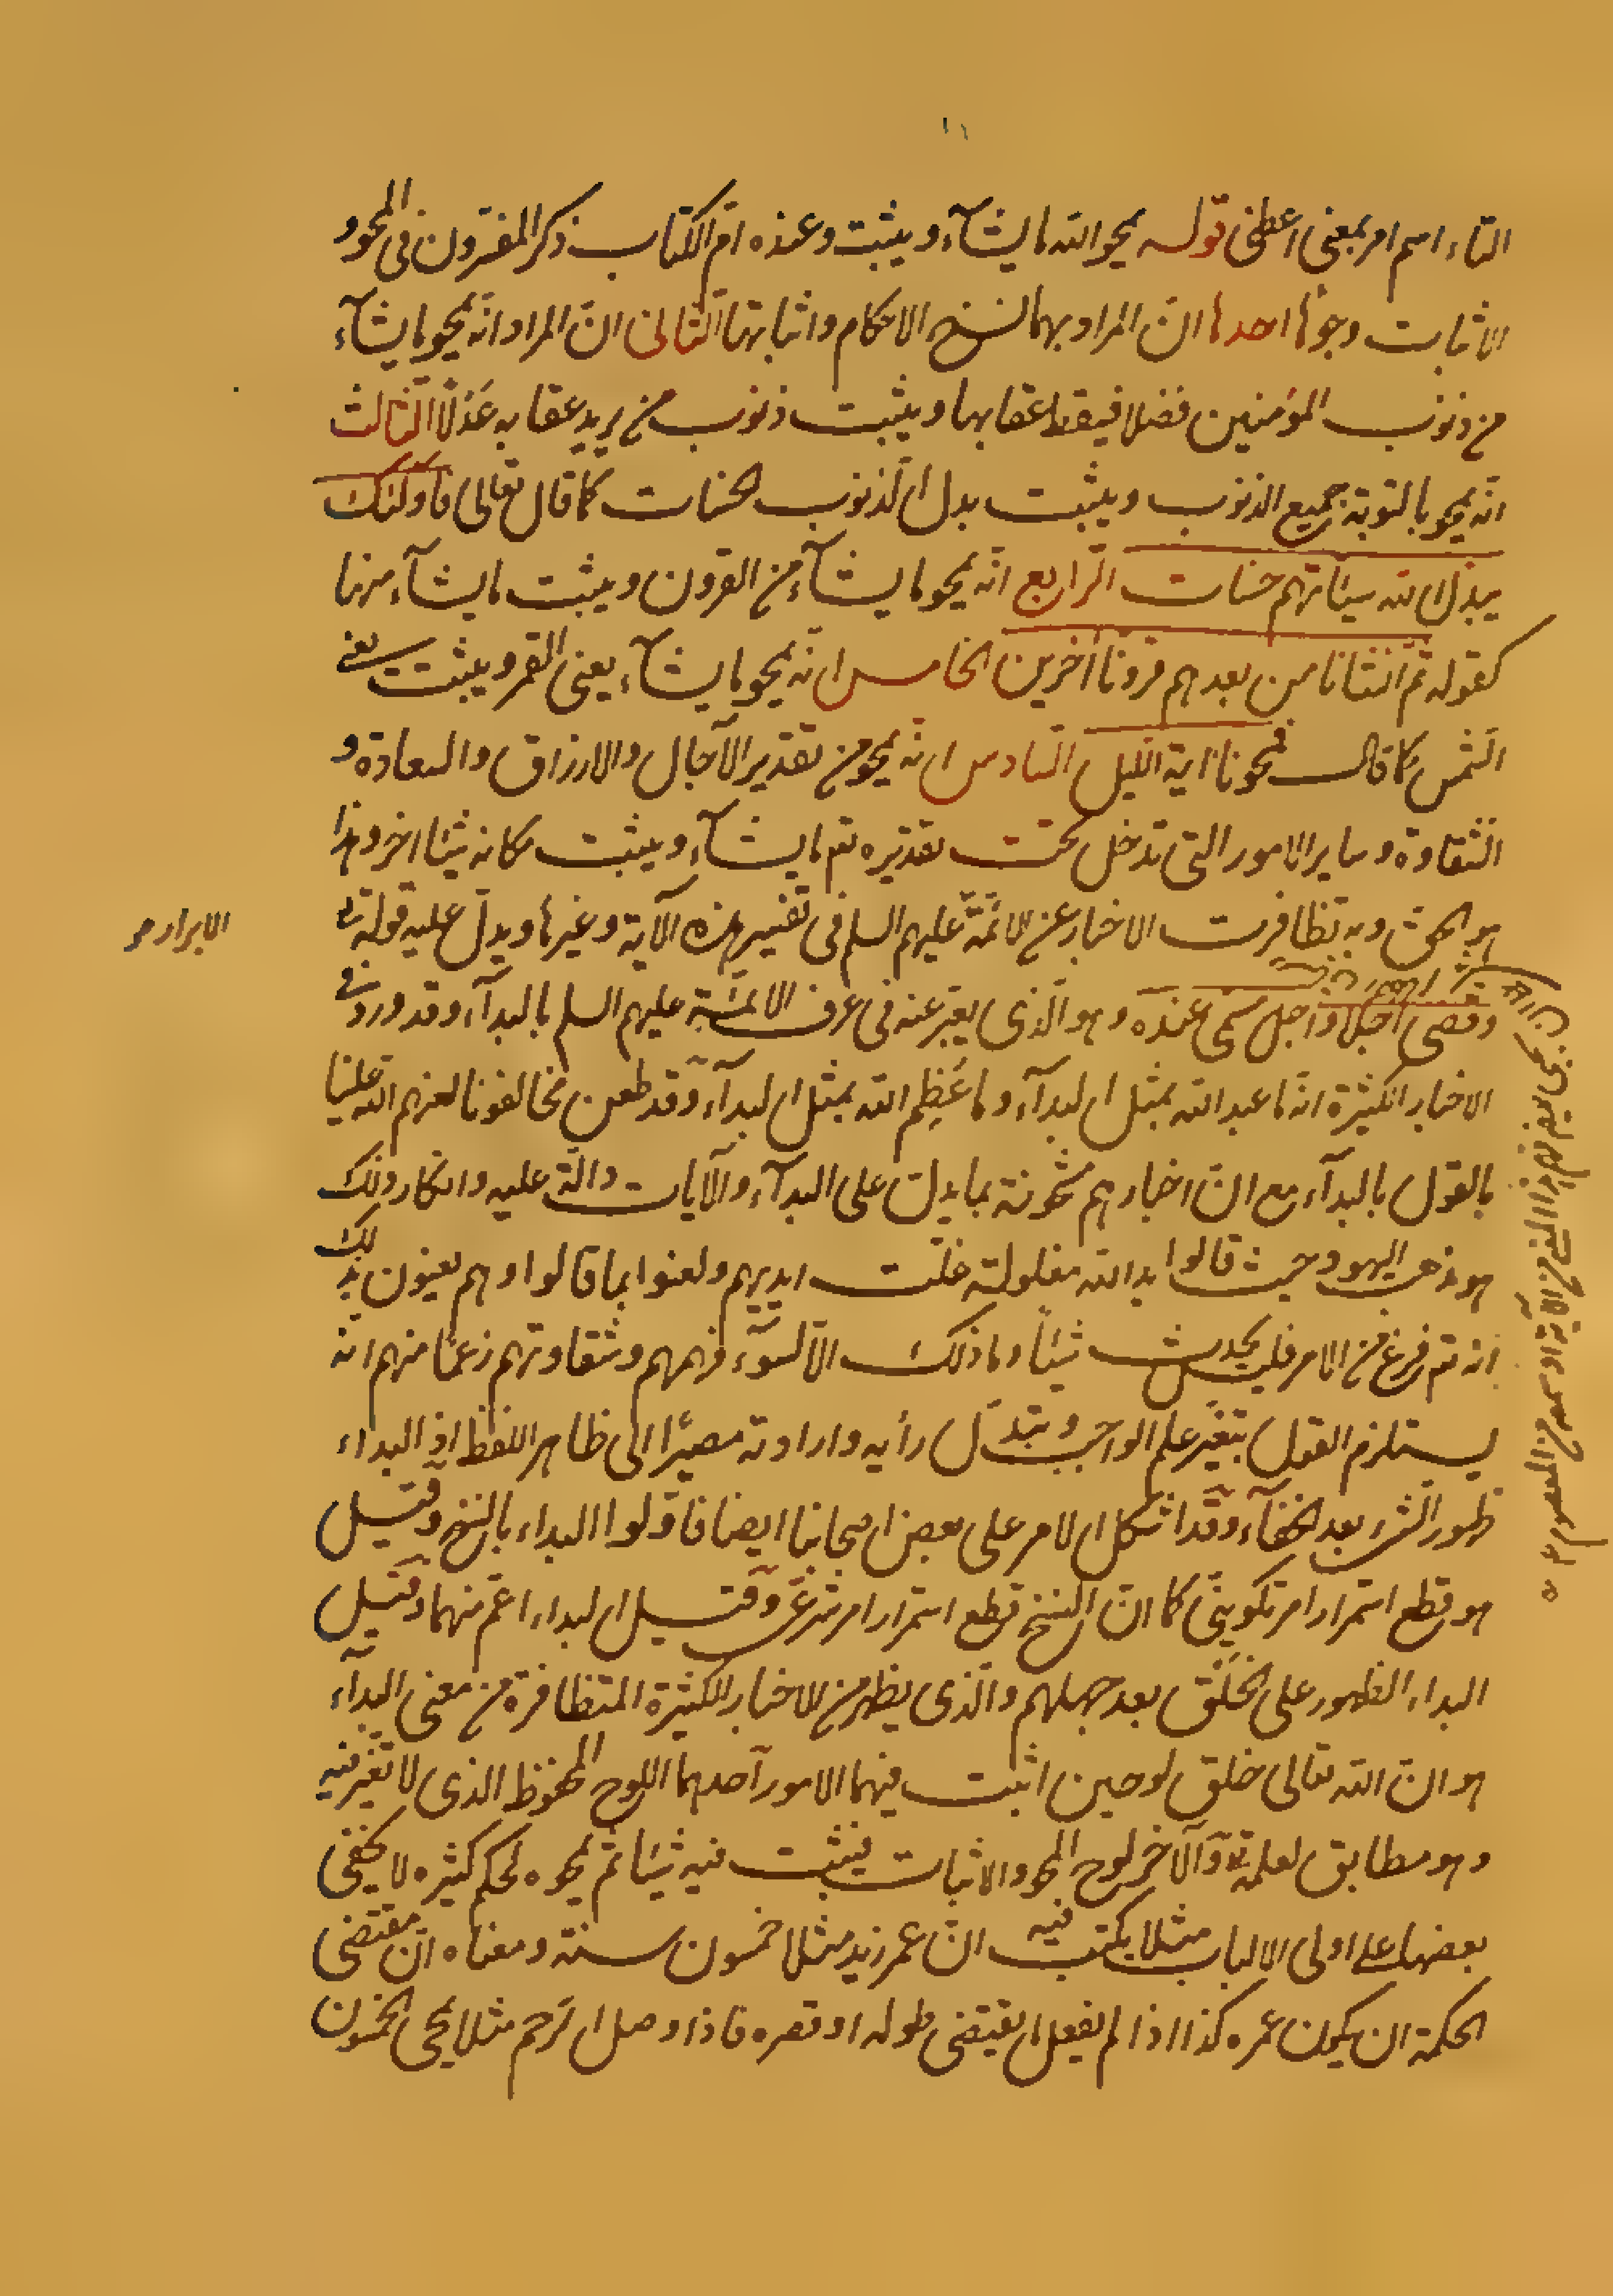 التاء اسم امر بمعنى اعطنى قوله يمحو الله ما يشآء ويثبت وعنده امّ الكتاب ذكر المفسّرون فى المحو و
الاثبات وجوها احدها انّ المراد بهما نسخ الاحكام واثباتها الثّانى انّ المراد انّه يمحو ما يشآء
من ذنوب المؤمنين فضلا فيسقط عقابها ويثبت ذنوب من يريد عقابه عدلًا الثّالث
انّه يمحو بالتوبة جميع الذنوب ويثبت بدل الذنوب الحسنات كما قال تعالى فاولئك
يبدّل الله سيئاتهم حسنات الرّابع انّه يمحو ما يشآء من القرون ويثبت ما يشآء منها
كقوله ثم انشأنا من بعدهم قرونا آخرين الخامس انّه يمحو ما يشآء يعنى القمر ويثبت يعنى
الشّمس كما قال فمحونا آية الليل السّادس انّه يمحو من تقدير الآجال والارزاق والسعادة و
الشقاوة وساير الامور التى تدخل تحت تقديره تع ما يشآء ويثبت مكانه شيئا اخر وهذا
هو الحق وبه تظافرت الاخبار عن الائمّة عليهم السلم فى تفسير هذه الآية وغيرها ويدلّ عليه قوله تع
وقضى اجلا واجل مسمى عنده وهو الّذى يعبّر عنه فى عرف الائمّة عليهم السلم بالبدآء وقد ورد فى
الاخبار الكثيرة انّه ما عبد الله بمثل البدآء وما عُظِم الله بمثل البدآء وقد طعن مخالفونا لعنهم الله علينا
بالقول بالبدآء مع انّ اخبارهم مشحونة بما يدلّ على البدآء والآيات دالّة عليه وانكار ذلك
هو مذهب اليهود حيث قالوا يد الله مغلولة غلّت ايديهم ولعنوا بما قالوا وهم يعنون بذلك
انه تع فرغ من الامر فليس يحدث شيئاً وما ذلك الّا لسوء فهمهم وشقاوتهم زعمًا منهم انّه
يستلزم القول بتغيّر علم الواجب وتبدّل رأيه وارادته مصيرًا الى ظاهر اللفظ اذ البداء
ظهور الشىء بعد الخفآء وقد اشكل الامر على بعض اصحابنا ايضا فاوّلوا البداء بالنسخ وقيل
هو قطع استمرار امر تكوينىّ كما انّ النسخ قطع استمرار امر شرعىّ وقيل البداء اعمّ منهما وقيل
البداء الظهور على الخلق بعد جهلهم والّذى يظهر من الاخبار الكثيرة المتظافرة من معنى البدآء
هو انّ الله تعالى خلق لوحين اثبت فيهما الامور احدهما اللوح المحفوظ الذى لا تغيّر فيه
وهو مطابق لعلمه تع والآخر لوح المحو والاثبات فيثبت فيه شيئا ثم يمحوه لحكم كثيره لا يخفى
بعضها على اولى الالباب مثلا يكتب فيه انّ عمر زيد مثلا خمسون سنة ومعناه انّ مقتضى
الحكمة ان يكون عمره كذا اذا لم يفعل ما يقتضى طوله او قصره فاذا وصل الرّحم مثلا يمحى الخمسون
الابرار